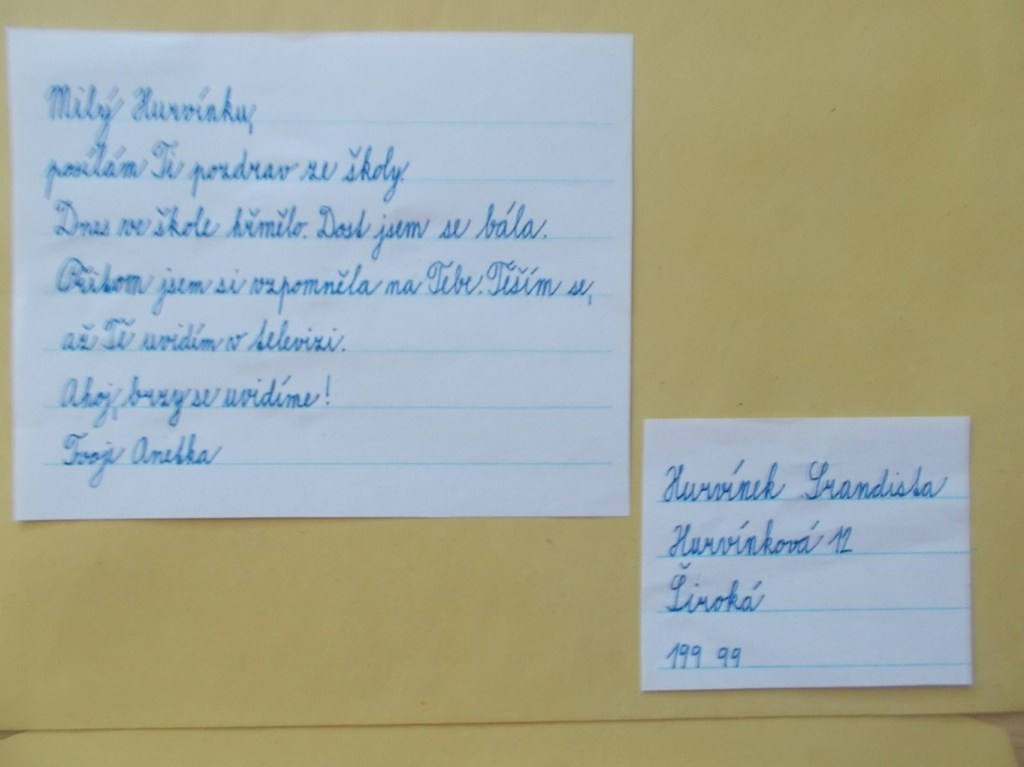 Milý Hurvínku,
posílám Ti pozdrav ze školy.
Dnes ve škole hřmělo. Dost jsem se bála.
Přitom jsem si vzpomněla na Tebe. Těším se,
až Tě uvidím v televizi.
Ahoj, brzy se uvidíme!
Tvoje Anetka
Hurvínek Srandista
Hurvínková 12
Široká
199 99